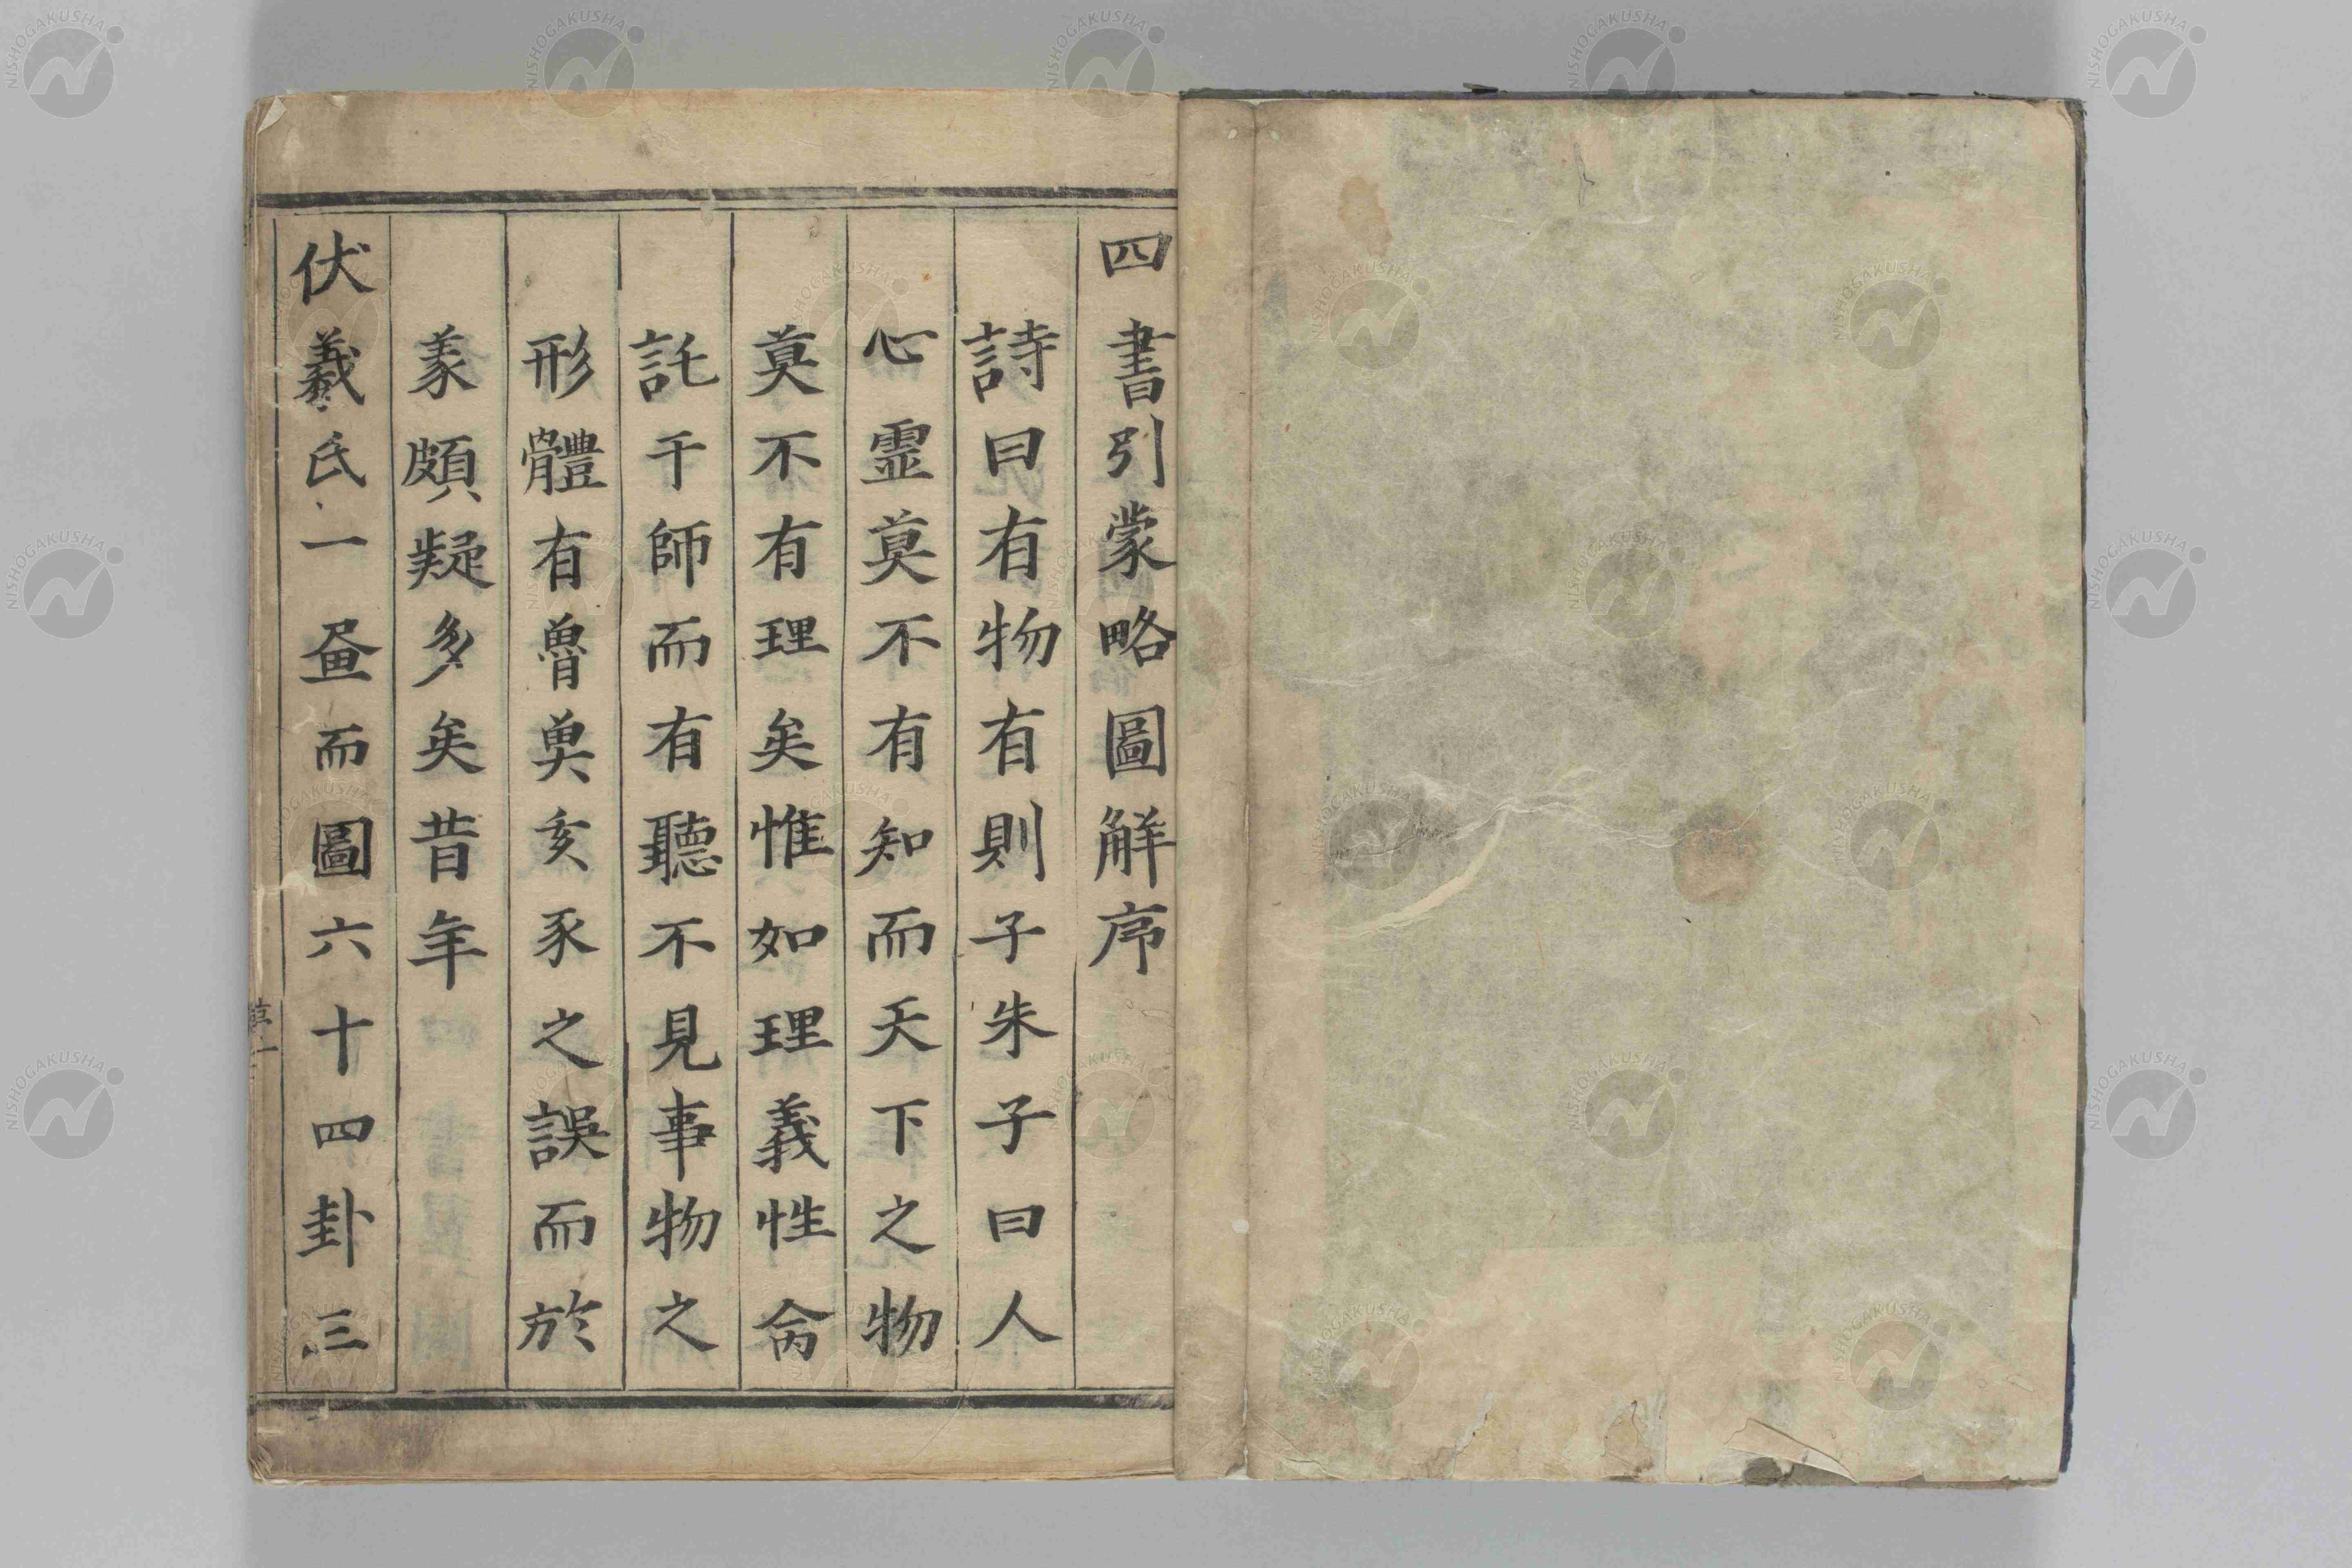 四書引蒙略圖解序
詩曰有物有則子朱子曰人
心霊莫不有知而天下之物
莫不有理矣惟如理義性命
託于師而有聽不見事物之
形體有魯魚亥豕之誤而於
蒙頗疑多矣昔年
伏羲氏一畫而圖六十四卦三
NISHOGAKUSHA